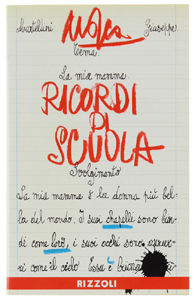 Martellini Mosca Giuseppe
Tema.
La mia mamma.
RICORDI
DI
SCUOLA
Svolgimento
La mia mamma è la donna più bel-
la del mondo. I suoi chapelli sono bion-
di come loro, i suoi occhi sono azzur-
ri come il cielo. Essa è
RIZZOLI